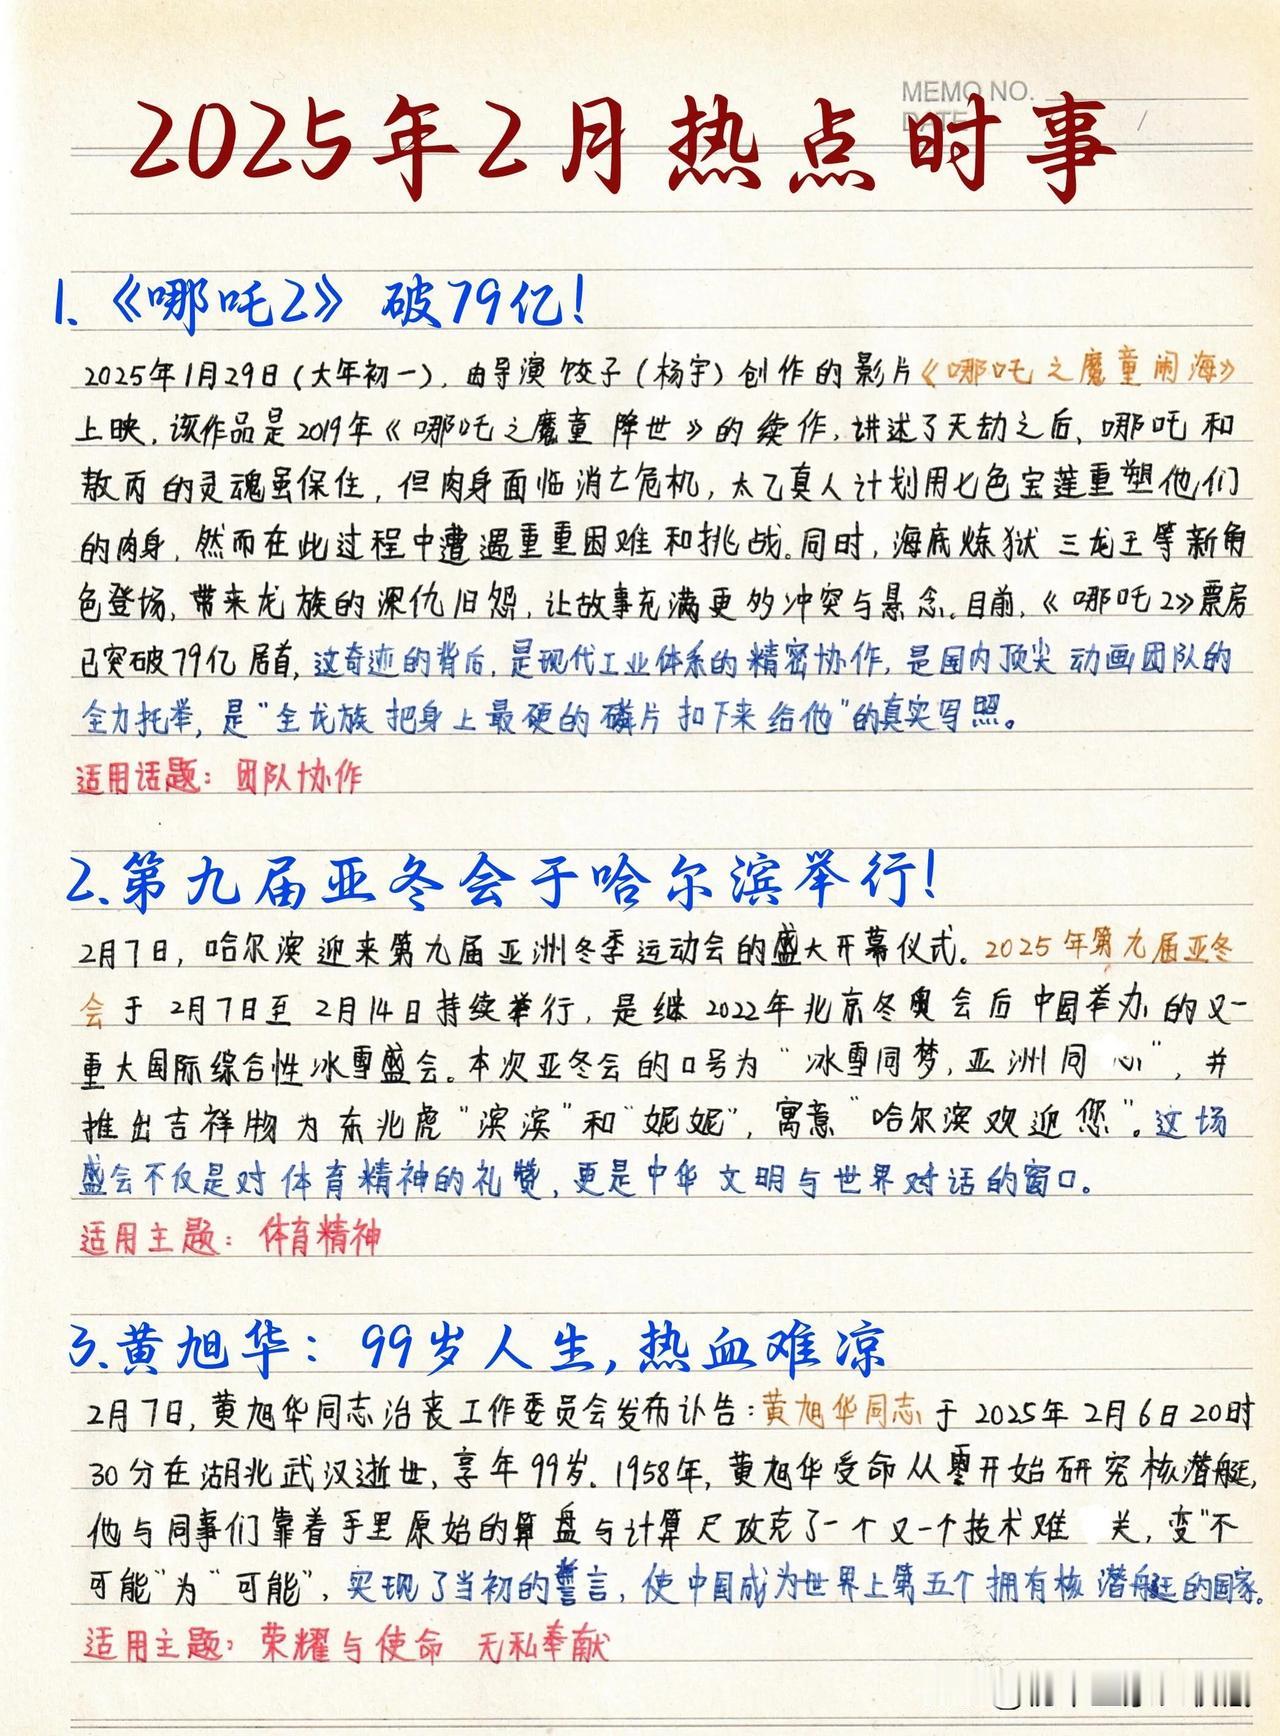 MEMO NO.
DATE / /
2025年2月热点时事
1.《哪吒2》破79亿!
2025年1月29日(大年初一),由导演饺子(杨宇)创作的影片《哪吒之魔童闹海》
上映,该作品是2019年《哪吒之魔童降世》的续作,讲述了天劫之后,哪吒和
敖丙的灵魂虽保住,但肉身面临消亡危机,太乙真人计划用七色宝莲重塑他们
的肉身,然而在此过程中遭遇重重困难和挑战。同时,海底炼狱三龙王等新角
色登场,带来龙族的深仇旧怨,让故事充满更多冲突与悬念。目前,《哪吒2》票房
已突破79亿居首,这奇迹的背后,是现代工业体系的精密协作,是国内顶尖动画团队的
全力托举,是“全龙族把身上最硬的磷片扣下来给他”的真实写照。
适用话题:团队协作
2.第九届亚冬会于哈尔滨举行!
2月7日,哈尔滨迎来第九届亚洲冬季运动会的盛大开幕仪式。2025年第九届亚冬
会于2月7日至2月14日持续举行,是继2022年北京冬奥会后中国举办的又一
重大国际综合性冰雪盛会。本次亚冬会的口号为“冰雪同梦,亚洲同心”,并
推出吉祥物为东北虎“滨滨”和“妮妮”,寓意“哈尔滨欢迎您”。这场
盛会不仅是对体育精神的礼赞,更是中华文明与世界对话的窗口。
适用主题:体育精神
3.黄旭华:99岁人生,热血难凉
2月7日,黄旭华同志治丧工作委员会发布讣告:黄旭华同志于2025年2月6日20时
30分在湖北武汉逝世,享年99岁。1958年,黄旭华受命从零开始研究核潜艇,
他与同事们靠着手里原始的算盘与计算尺攻克了一个又一个技术难关,变“不
可能”为“可能”,实现了当初的誓言,使中国成为世界上第五个拥有核潜艇的国家。
适用主题:荣耀与使命 无私奉献